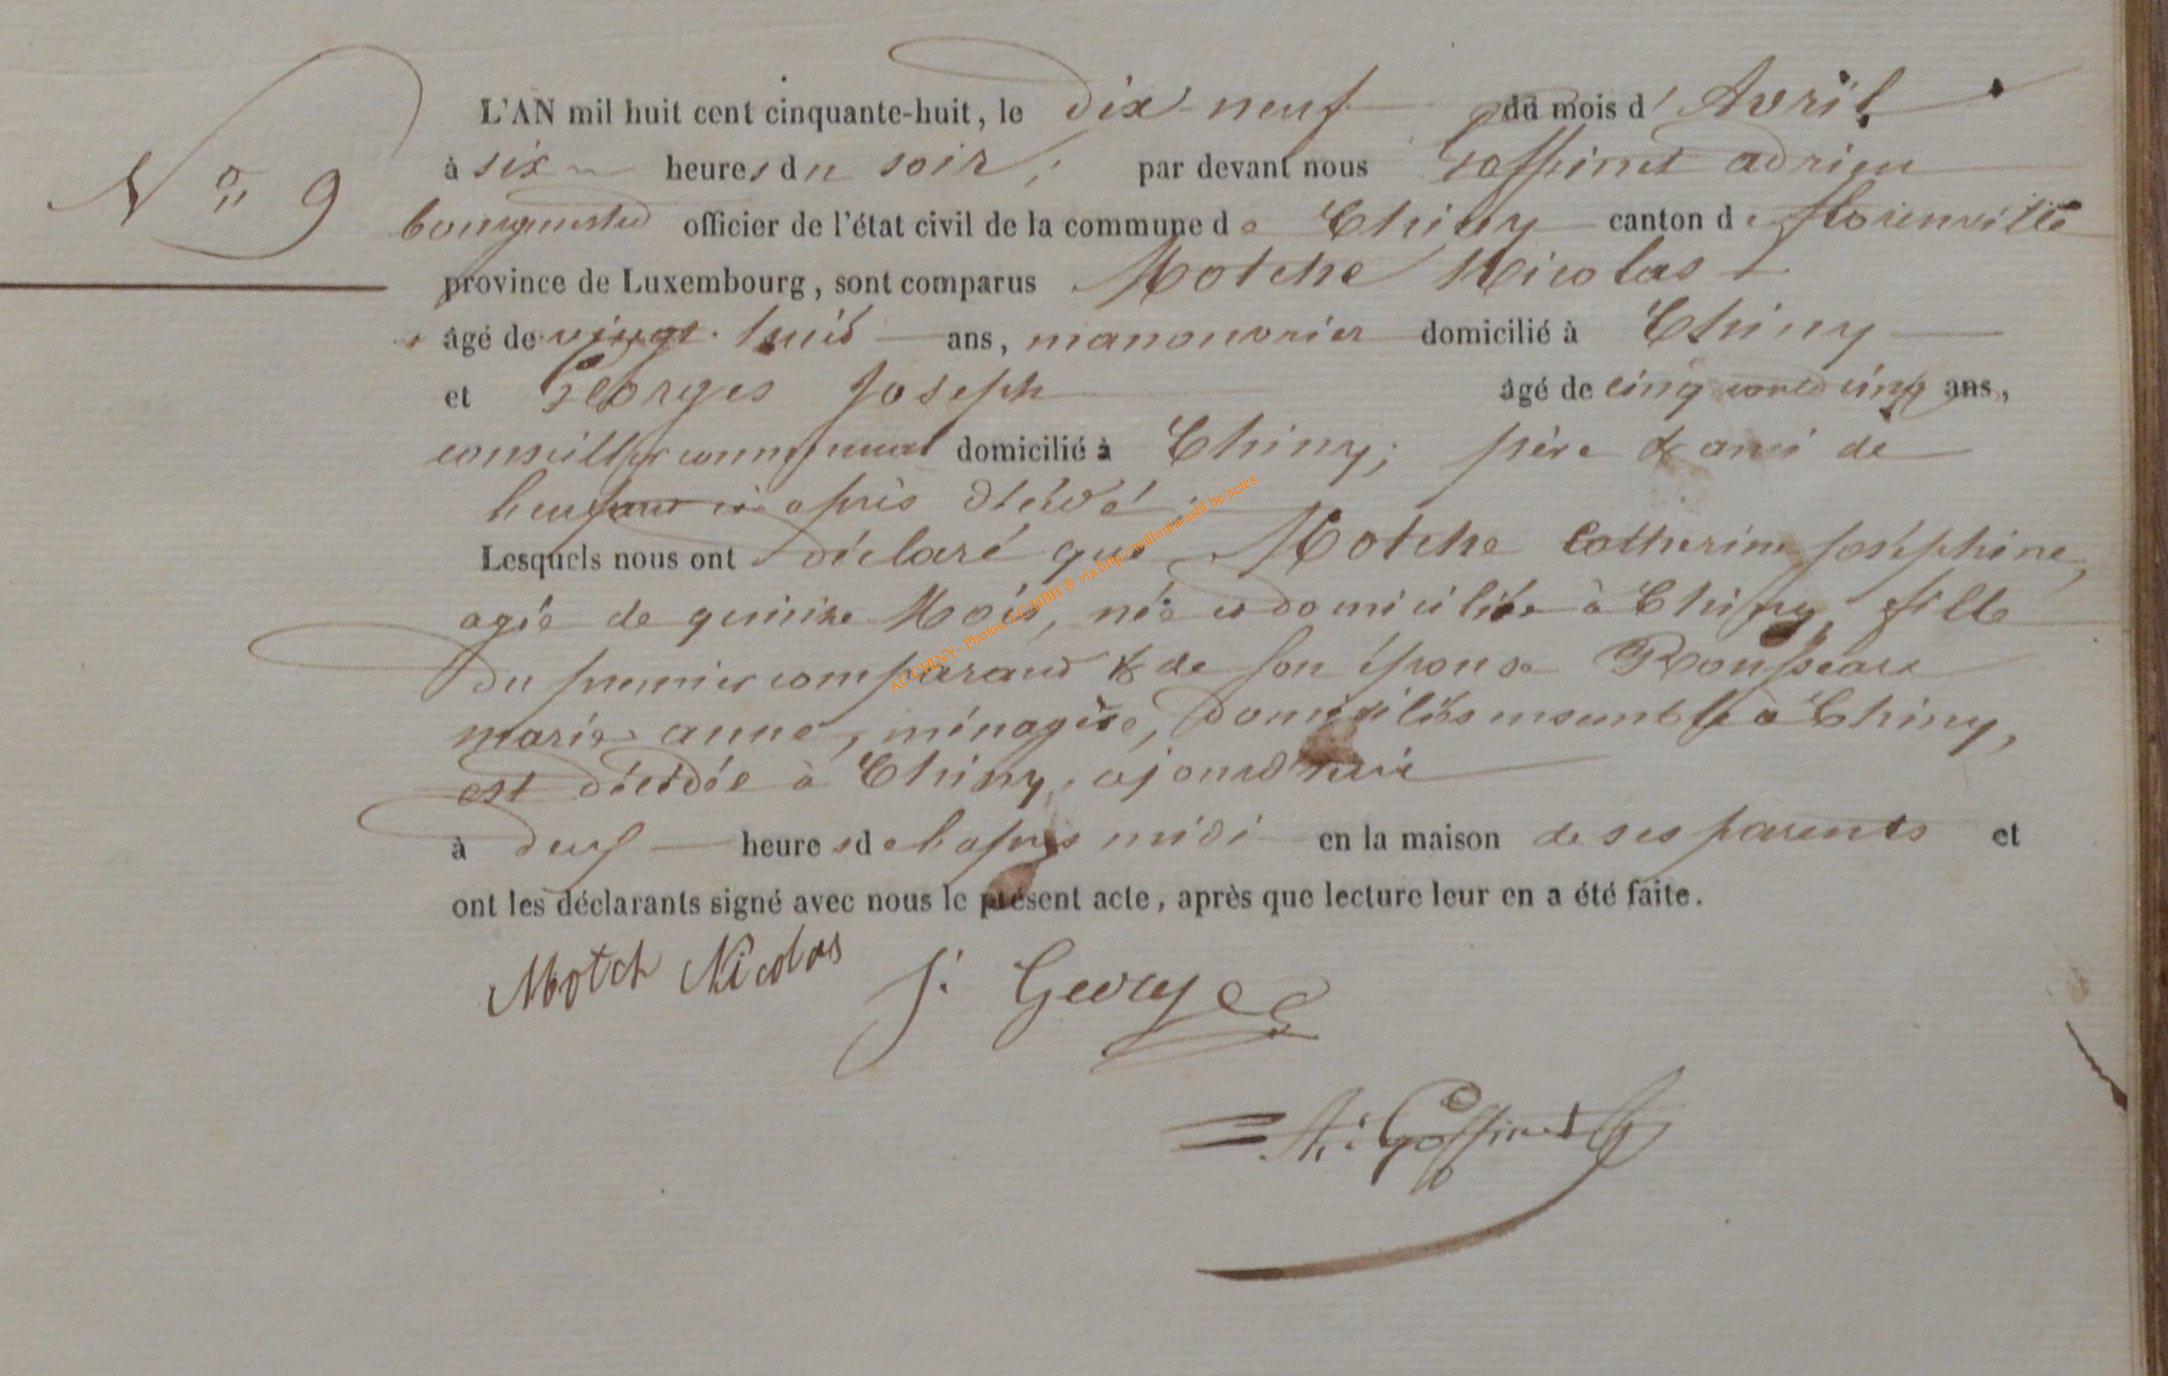 N° 9
L'AN mil huit cent cinquante-huit, le dix-neuf du mois d' Avril
à six heures du soir, par devant nous Goffinet adrien
bourgmestre officier de l'état civil de la commune de Chiny canton de florenville
province de Luxembourg, sont comparus Motche Nicolas
âgé de vingt-huit ans, manouvrier domicilié à Chiny
et Georges Joseph âgé de cinquante cinq ans,
conseiller communal domicilié à Chiny; père & ami de
l'enfant ci-après décédé;
Lesquels nous ont déclaré que Motche Catherine Joséphine,
agée de quinze Mois, née et domiciliée à Chiny, fille
du premier comparant & de son épouse Rousseaux
marie anne, ménagère, domiciliés ensemble à Chiny,
est décédée à Chiny, ajourd'hui
à deux heures de l'après midi en la maison de ses parents et
ont les déclarants signé avec nous le présent acte, après que lecture leur en a été faite.
Motch Nicolas J. Georges
A: Goffinet